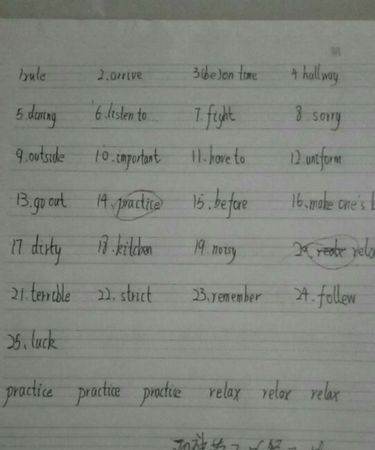 1.rule 2.arrive 3(be)on time 4 hallway
5.dining 6.listen to 7.fight 8.sorry
9.outside 10.important 11.have to 12.uniform
13.go out 14.practice 15.before 16.make one's b
17.dirty 18.kitchen 19.noisy 20. relax
21.terrible 22.strict 23.remember 24.follow
25.luck
practice practice practice relax relax relax